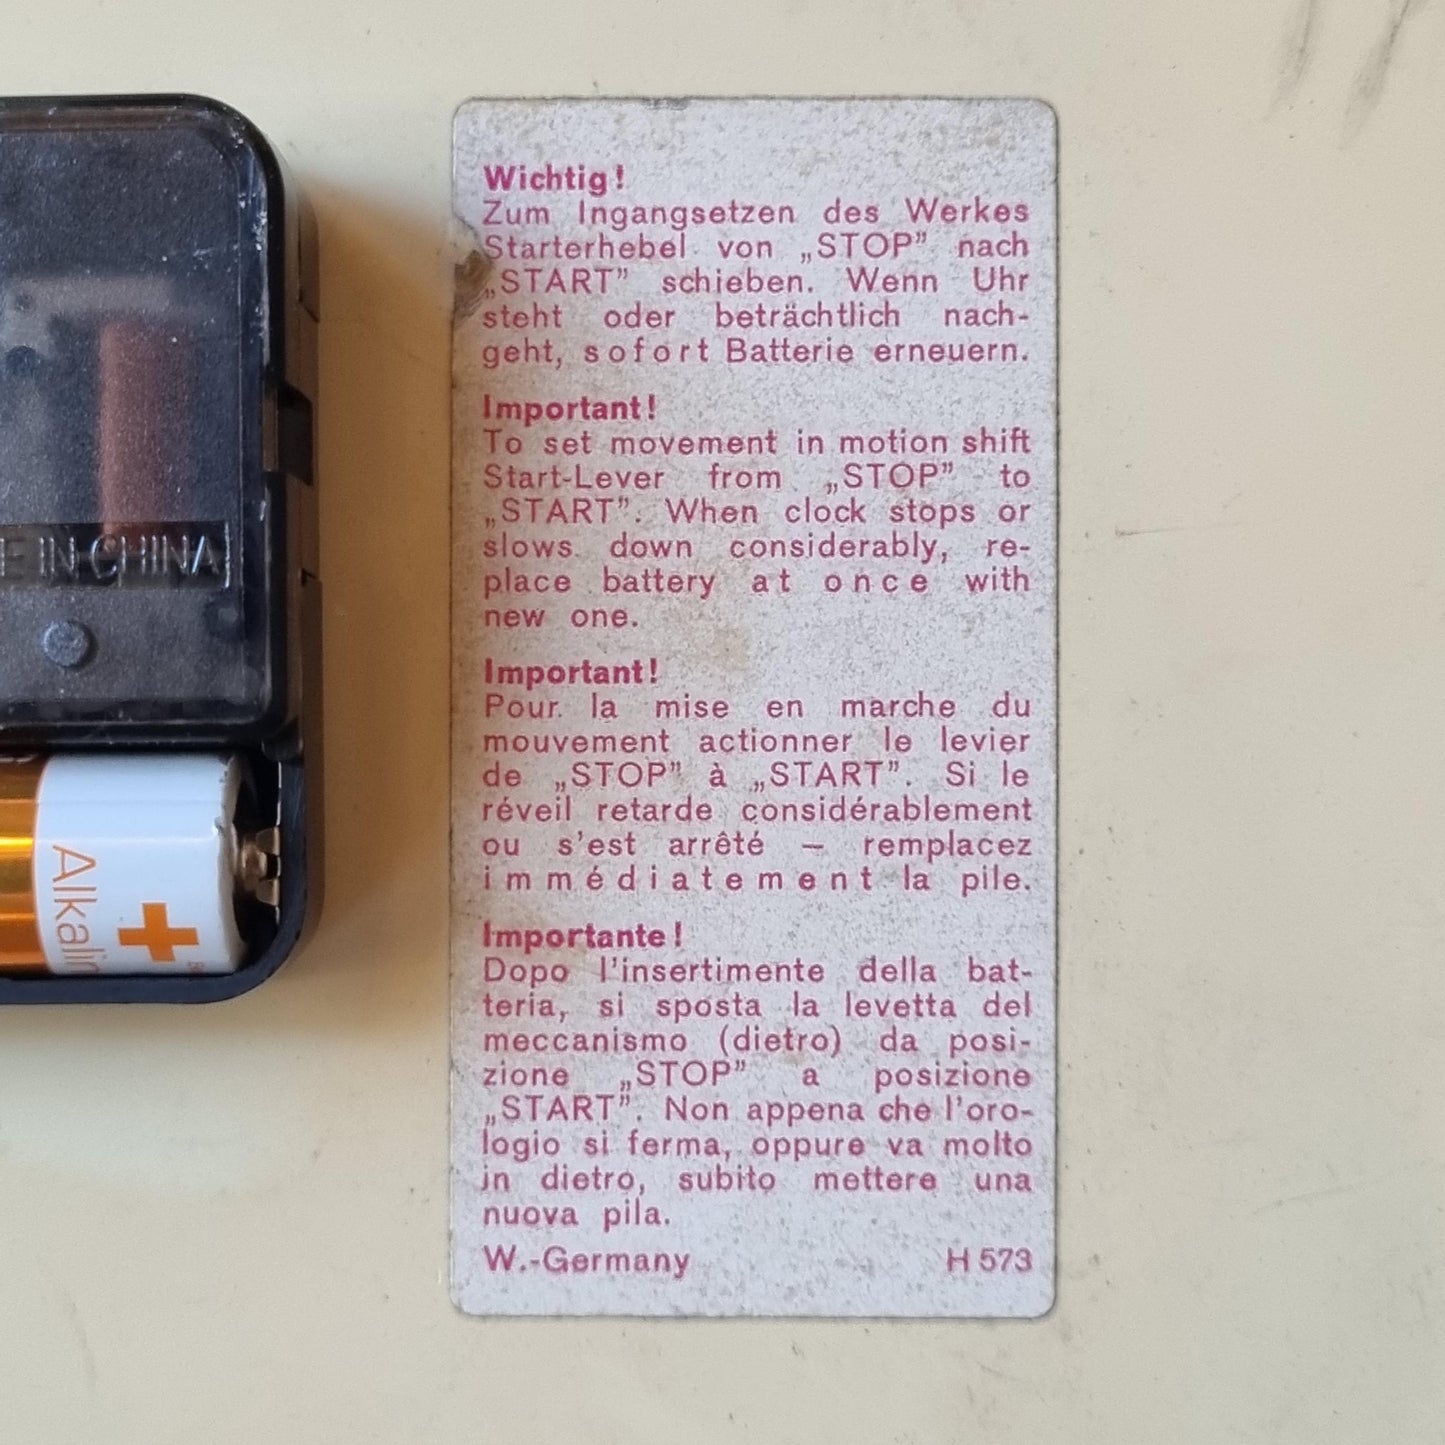 E IN CHINA
Alkalin
Wichtig!
Zum Ingangsetzen des Werkes
Starterhebel von „STOP” nach
„START” schieben. Wenn Uhr
steht oder beträchtlich nach-
geht, sofort Batterie erneuern.
Important!
To set movement in motion shift
Start-Lever from „STOP” to
„START”. When clock stops or
slows down considerably, re-
place battery at once with
new one.
Important!
Pour la mise en marche du
mouvement actionner le levier
de „STOP” à „START”. Si le
réveil retarde considérablement
ou s'est arrêté – remplacez
immédiatement la pile.
Importante!
Dopo l'insertimente della bat-
teria, si sposta la levetta del
meccanismo (dietro) da posi-
zione „STOP” a posizione
„START”. Non appena che l'oro-
logio si ferma, oppure va molto
in dietro, subito mettere una
nuova pila.
W.-Germany H 573